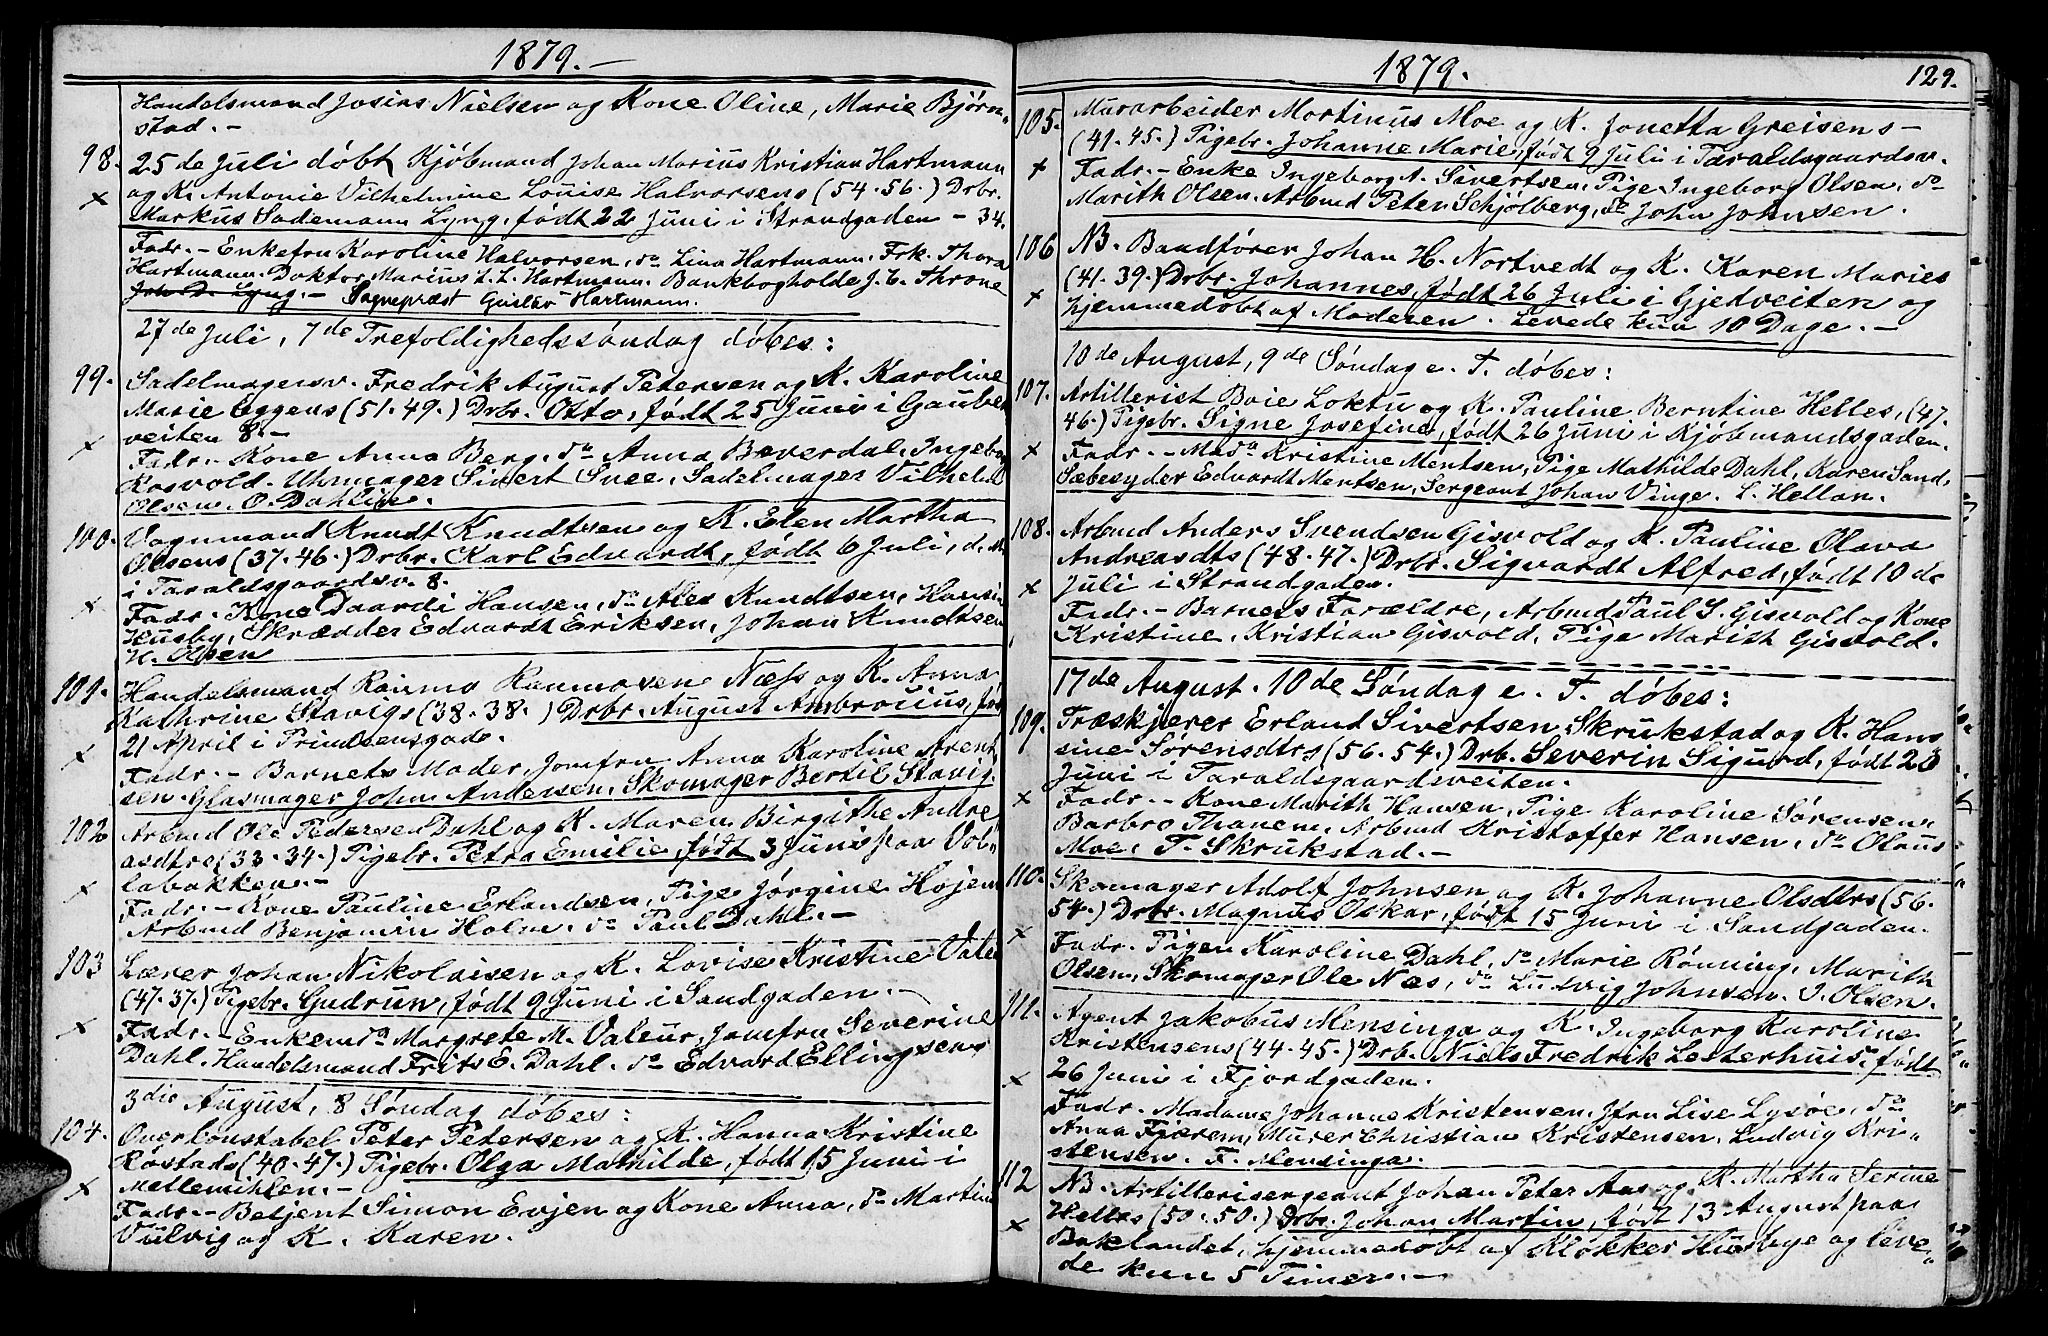 1879.—
Handelsmand Josias Nielsen og Kone Oline, Marie Bjørn„
stad.—
98. 25de Juli døbt Kjøbmand Johan Marius Kristian Hartmann
× og K. Antonie Vilhelmine Louise Halvorsens (54.56.) Drbr.
Markus Sademann Lyng, født 22 Juni i Strandgaden — 34.
Fadr.— Enkefru Karoline Halvorsen, do Lina Hartmann, Frk. Thora
Hartmann. Doktor Marius L. L. Hartmann. Bankbogholde J. C. Throne
Joh. D. Lyng.— Sogneprest Gustav Hartmann.
27de Juli, 7de Trefoldighedssøndag døbes:
99. Sadelmagersv. Fredrik August Petersen og K. Karoline
Marie Eggens (51.49.) Drbr. Otto, født 25 Juni i Gaubek
× veiten 8.—
Fadr.— Kone Anna Berg, do Anna Bæverdal, Ingebor
Rosvold. Uhrmager Sivert Snee, Sadelmager Vilhelm
Olsen. O. Dahlin.
100. Vognmand Knudt Knudtsen og K. Elen Martha
Olsens (37.46.) Drbr. Karl Edvardt, født 6 Juli, d. A.
i Taraldsgaardsv. 8.
× Fadr.— Kone Daardi Hansen, do Alex Knudtsen, Hansin
Husby, Skrædder Edvardt Eriksen, Johan Knudtsen
H. Olsen
101. Handelsmand Rasmus Rasmusen Næss og K. Anna
Kathrine Stavigs (38.38.) Drbr. August Ambrosius, fød
21 April i Prindsensgade.
× Fadr.— Barnets Moder, Jomfru Anna Karoline Arent
sen. Glasmager John Andersen, Skomager Bertil Stavig.
102 Arbmd Ole Pedersen Dahl og K. Maren Birgithe Andre
asdtrs (33.34.) Pigebr. Petra Emilie, født 3 Juni paa Vol„
× labakken.—
Fadr.— Kone Pauline Erlandsen, Pige Jørgine Højem
Arbmd Benjamin Holm. do Paul Dahl.—
103 Lærer Johan Nikolaisen og K. Lovise Kristine Vale
(47.37.) Pigebr. Gudrun, født 9 Juni i Sandgaden.—
× Fadr.— Enkemda Margrete M. Valeur, Jomfru Severine
Dahl. Handelsmand Frits E. Dahl. do Edvard Ellingsen
3die August, 8 Søndag døbes:
104. Overkonstabel Peter Pedersen og K. Hanna Kristine
Røstads (40.47.) Pigebr. Olga Mathilde, født 15 Juni i
× Mellemihlen.—
Fadr.— Betjent Simon Evjen og Kone Anna, do Martin
Vulvig og K. Karen.
1879. 129.
105. Murarbeider Mortinus Moe og K. Jonetta Greisens—
(41.45.) Pigebr. Johanne Marie, født 9 Juli i Taraldsgaardsv.
× Fadr.— Enke Ingeborg A. Sivertsen, Pige Ingeborg Olsen, do
Marith Olsen. Arbmd Peter Schjølberg, do John Johnsen.
106 NB. Baadfører Johan H. Nortvedt og K. Karen Maries
(41.39.) Drbr. Johannes, født 26 Juli i Gjedveiten og
× hjemmedøbt af Moderen. Levede kun 10 Dage.—
10de August, 9de Søndag e. T. døbes:
107. Artillerist Boie Loktu og K. Pauline Berntine Helles, (47.
46.) Pigebr. Signe Josefine, født 26 Juni i Kjøbmandsgaden.
× Fadr.— Mada Kristine Mentsen, Pige Mathilde Dahl, Karen Sand.
Sæbesyder Edvardt Mentsen, Sergeant Johan Vinge. L. Hellan.
108. Arbmd Anders Svendsen Gisvold og K. Pauline Olava
Andreasdts (48.47.) Drbr. Sigvardt Alfred, født 10de
× Juli i Strandgaden.
Fadr.— Barnets Forældre, Arbmd Paul S. Gisvold og Kone
Kristine, Kristian Gisvold, Pige Marith Gisvold.
17de August. 10de Søndag e. T. døbes:
109. Træskjærer Erland Sivertsen Skrukstad og K. Han„
sine Sørensdtrs (56.54.) Drb. Severin Sigurd, født 20
Juni i Taraldsgaardsveiten.
× Fadr.— Kone Marith Hansen, Pige Karoline Sørensen„
Barbro Thanem, Arbmd Kristoffer Hansen, do Olaus
Moe, T. Skrukstad.—
110. Skomager Adolf Johnsen og K. Johanne Olsdtrs (56.
54.) Drbr. Magnus Oskar, født 15 Juni i Sandgaden.
× Fadr. Pigen Karoline Dahl, do Marie Rønning, Marith
Olsen, Skomager Ole Næs, do Ludvig Johnsen. J. Olsen.
111. Agent Jakobus Mensinga og K. Ingeborg Karoline
Kristensens (44.45.) Drbr. Niels Fredrik Lesterhuis, født
× 26 Juni i Fjordgaden.
Fadr.— Madame Johanne Kristensen, Jfru Lise Lysøe, do
Anna Fjærem, Murer Christian Kristensen, Ludvig Kri„
stensen. F. Mensinga.
112 NB. Artillerisergeant Johan Peter Aas og K. Martha Serine
Helles (50.50.) Drbr. Johan Martin, født 13 August paa
× Baklandet, hjemmedøbt af Klokker Husbye og leve„
de kun 5 Timer.—